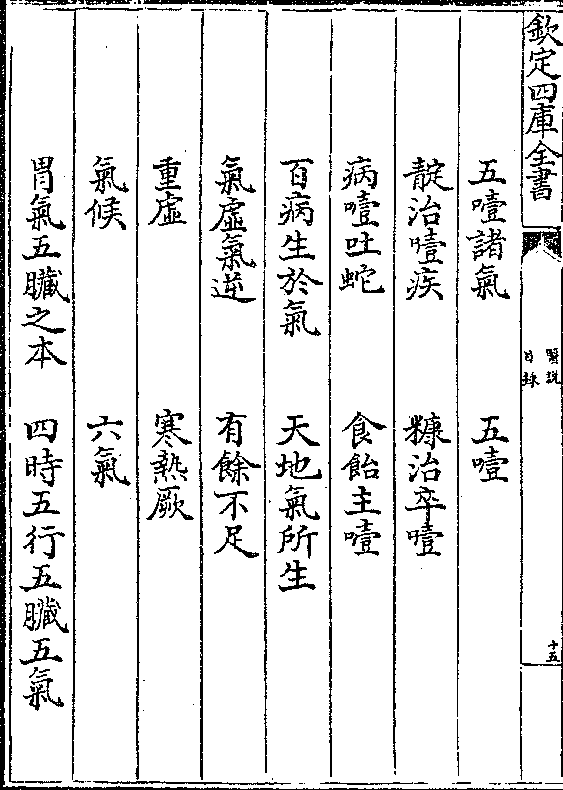 欽定四庫全書
醫說
目錄
十五
五噎諸氣　五噎
靛治噎疾　糠治卒噎
病噎吐蛇　食飴主噎
百病生於氣　天地氣所生
氣虛氣逆　有餘不足
重虛　寒熱厥
氣候　六氣
胃氣五臟之本　四時五行五臟五氣